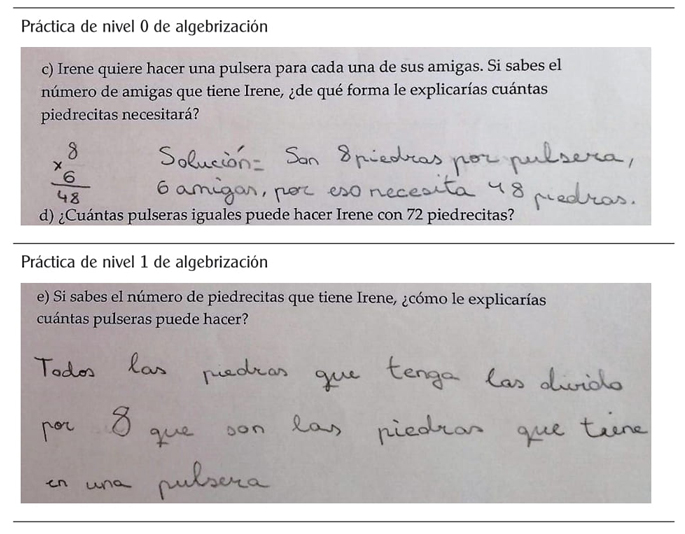 Práctica de nivel 0 de algebrización
c) Irene quiere hacer una pulsera para cada una de sus amigas. Si sabes el
número de amigas que tiene Irene, ¿de qué forma le explicarías cuántas
piedrecitas necesitará?
8
x 6
48
Solución= Son 8 piedras por pulsera,
6 amigas, por eso necesita 48 piedras.
d) ¿Cuántas pulseras iguales puede hacer Irene con 72 piedrecitas?
Práctica de nivel 1 de algebrización
e) Si sabes el número de piedrecitas que tiene Irene, ¿cómo le explicarías
cuántas pulseras puede hacer?
Todos las piedras que tenga las divido
por 8 que son las piedras que tiene
en una pulsera